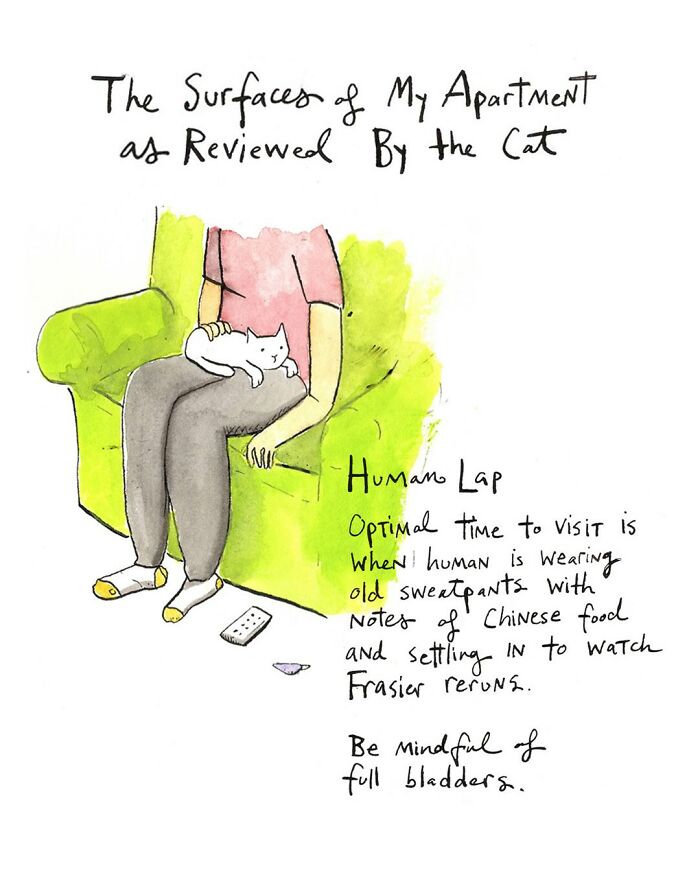 The Surfaces of My Apartment
as Reviewed By the Cat
Human Lap
Optimal time to visit is
when human is wearing
old sweatpants with
notes of Chinese food
and settling in to watch
Frasier reruns.
Be mindful of
full bladders.